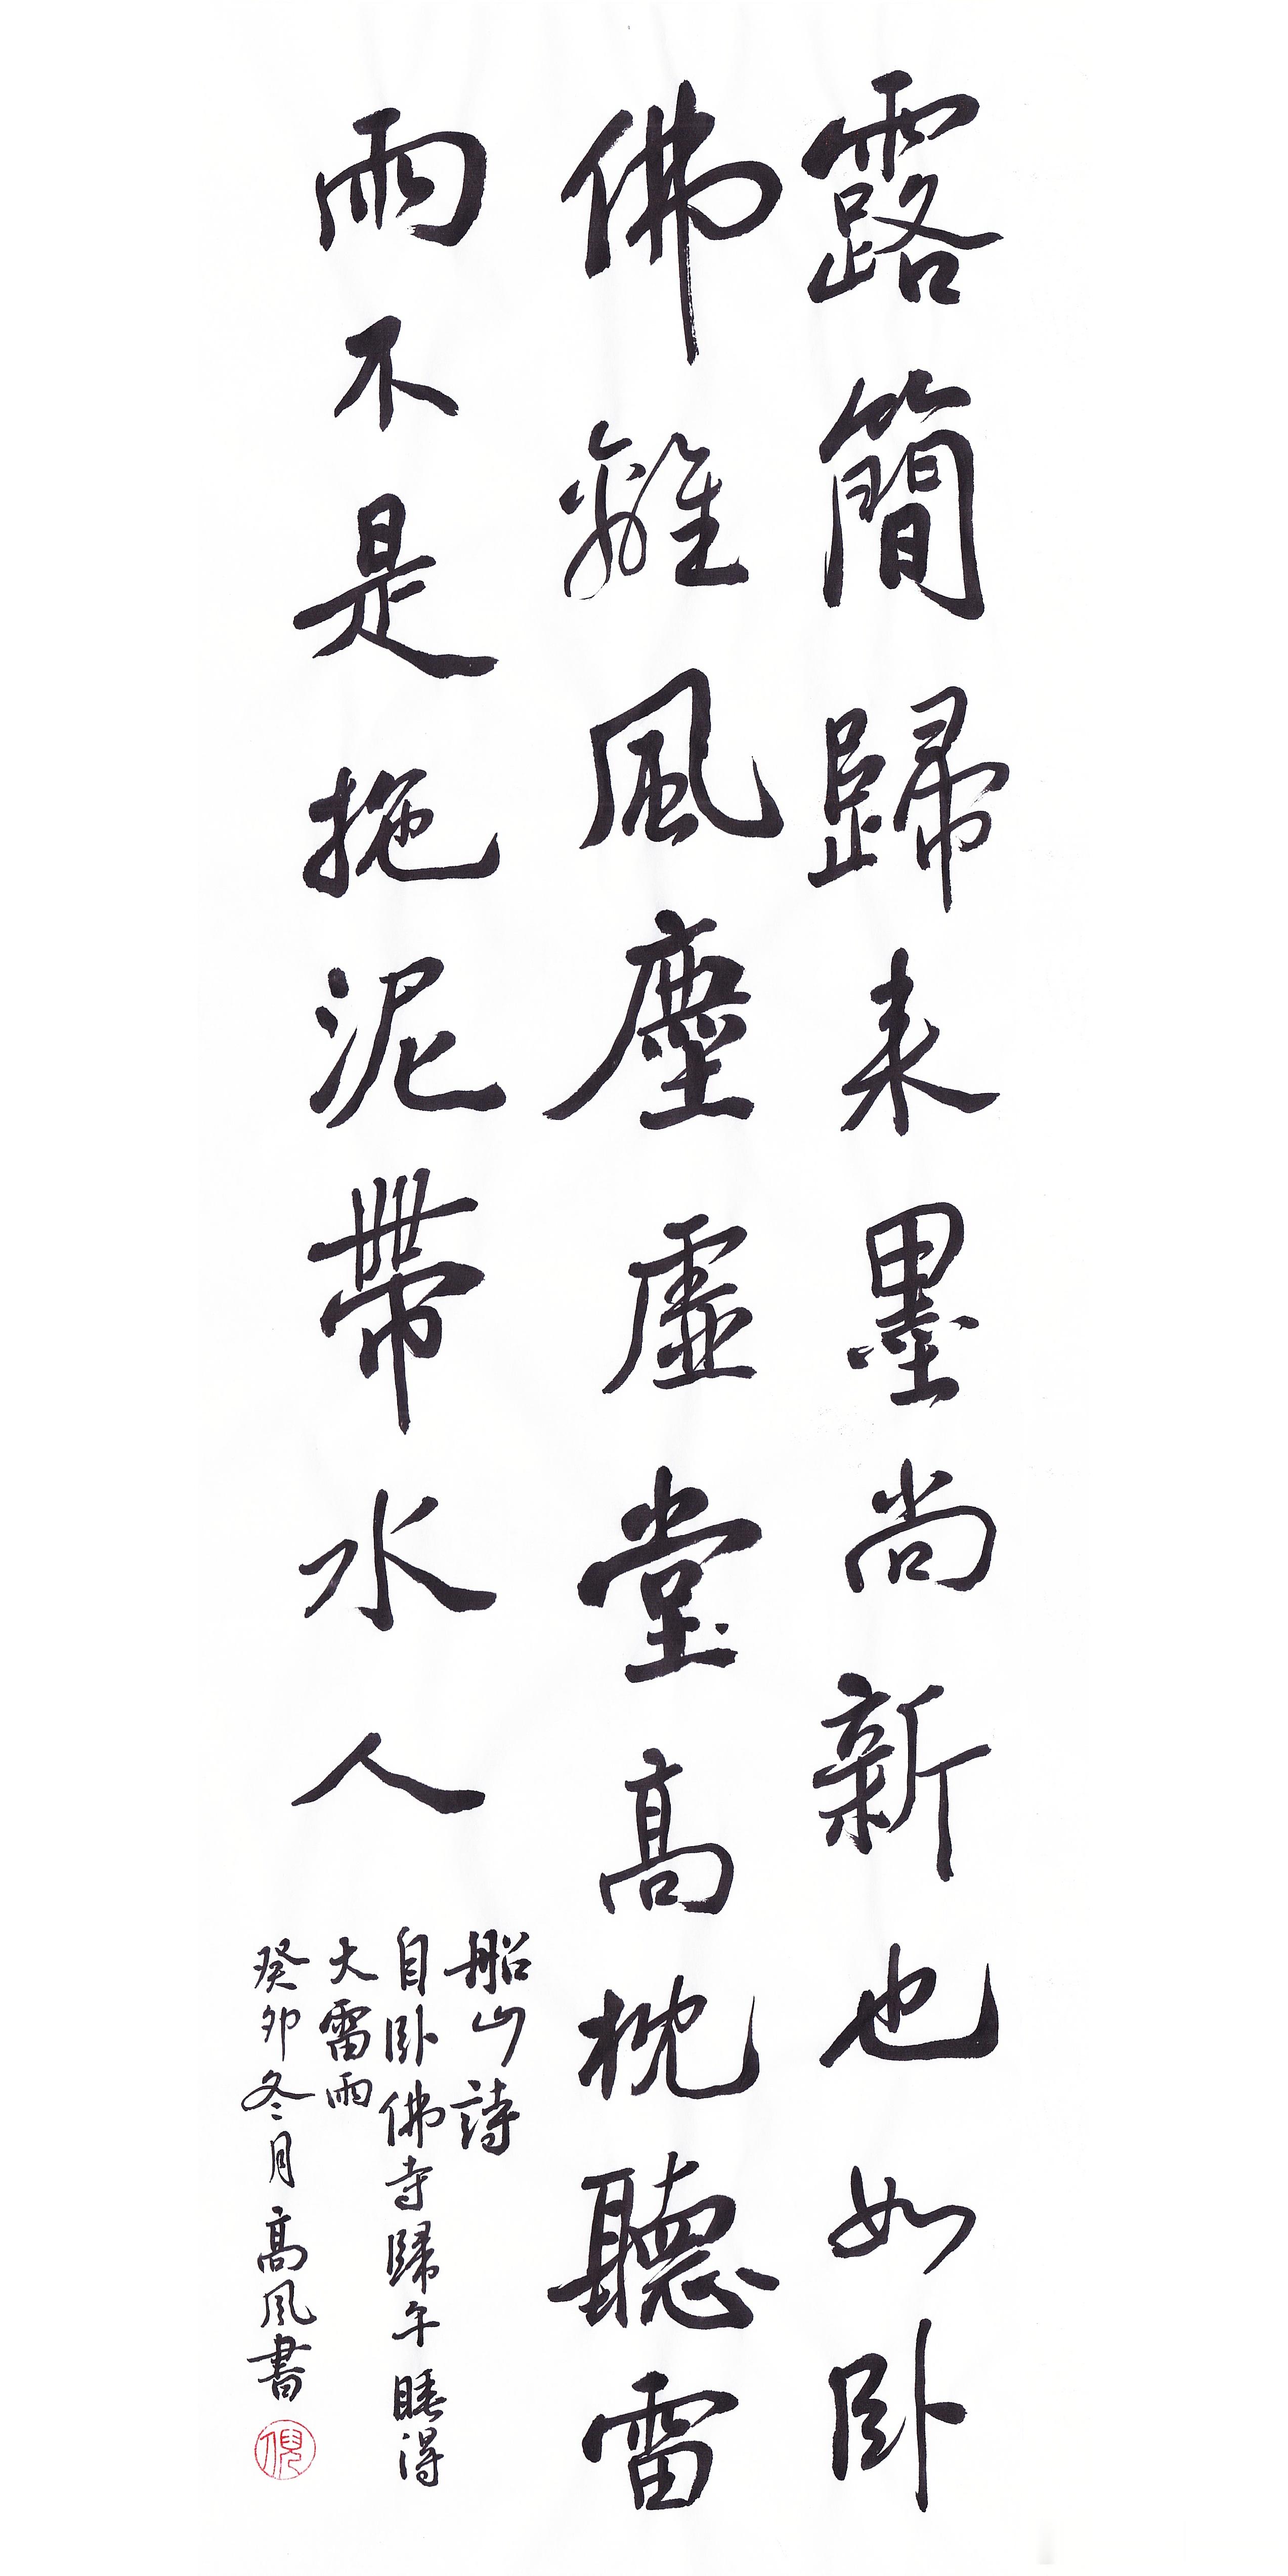 露簡歸来墨尚新也如卧
佛離風塵虛堂高枕聽雷
雨不是拖泥帶水人
船山詩
自卧佛寺歸午睡得
大雷雨
癸卯冬月高风書
倪